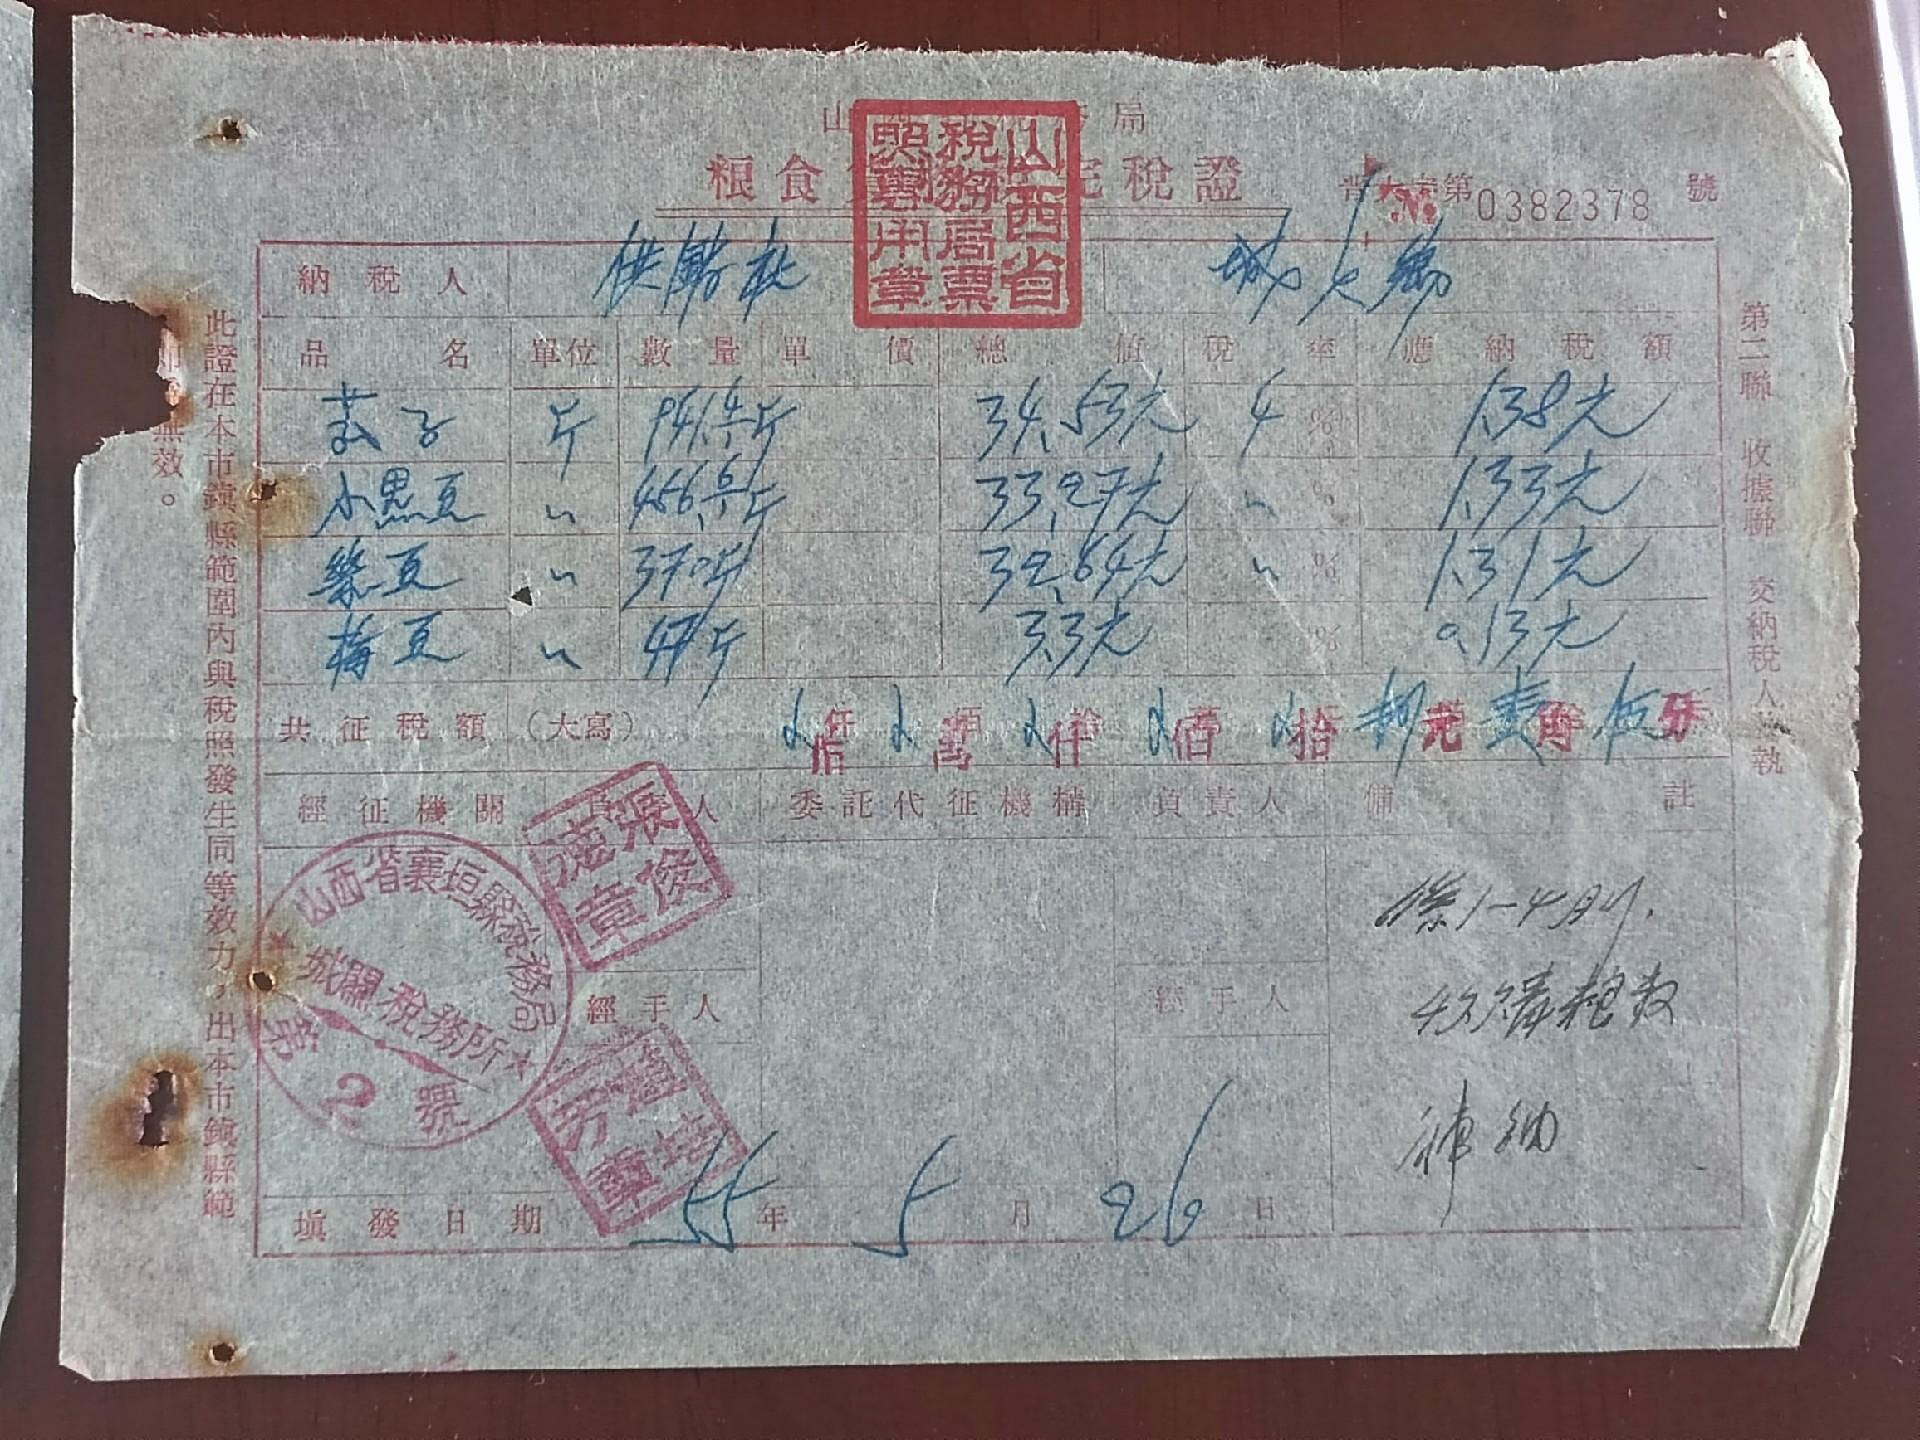 山
局
山西省
稅務局票
照專用章
粮食
完稅證
第 № 0382378 號
納稅人 供銷社
品名 單位 數量 單價 總值 稅率 應納稅額
斤 34.53元 4 % 1.38元
小黑豆 〃 33.27元 〃 % 1.33元
豆 〃 370斤 32.64元 〃 % 1.31元
梅豆 〃 47斤 3.3元 % 0.13元
共征稅額（大寫） 萬 仟 佰 拾 元 壹角 伍分
經征機關 負責人 委託代征機構 負責人 備註
張俊德章
山西省襄垣縣稅務局
城關稅務所
第2號
經手人 經手人
係1-4月
粮
補納
填發日期 55年 5月 26日
此證在本市鎮縣範圍內與稅照發生同等效力，出本市鎮縣範
無效。
第二聯 收據聯 交納稅人收執